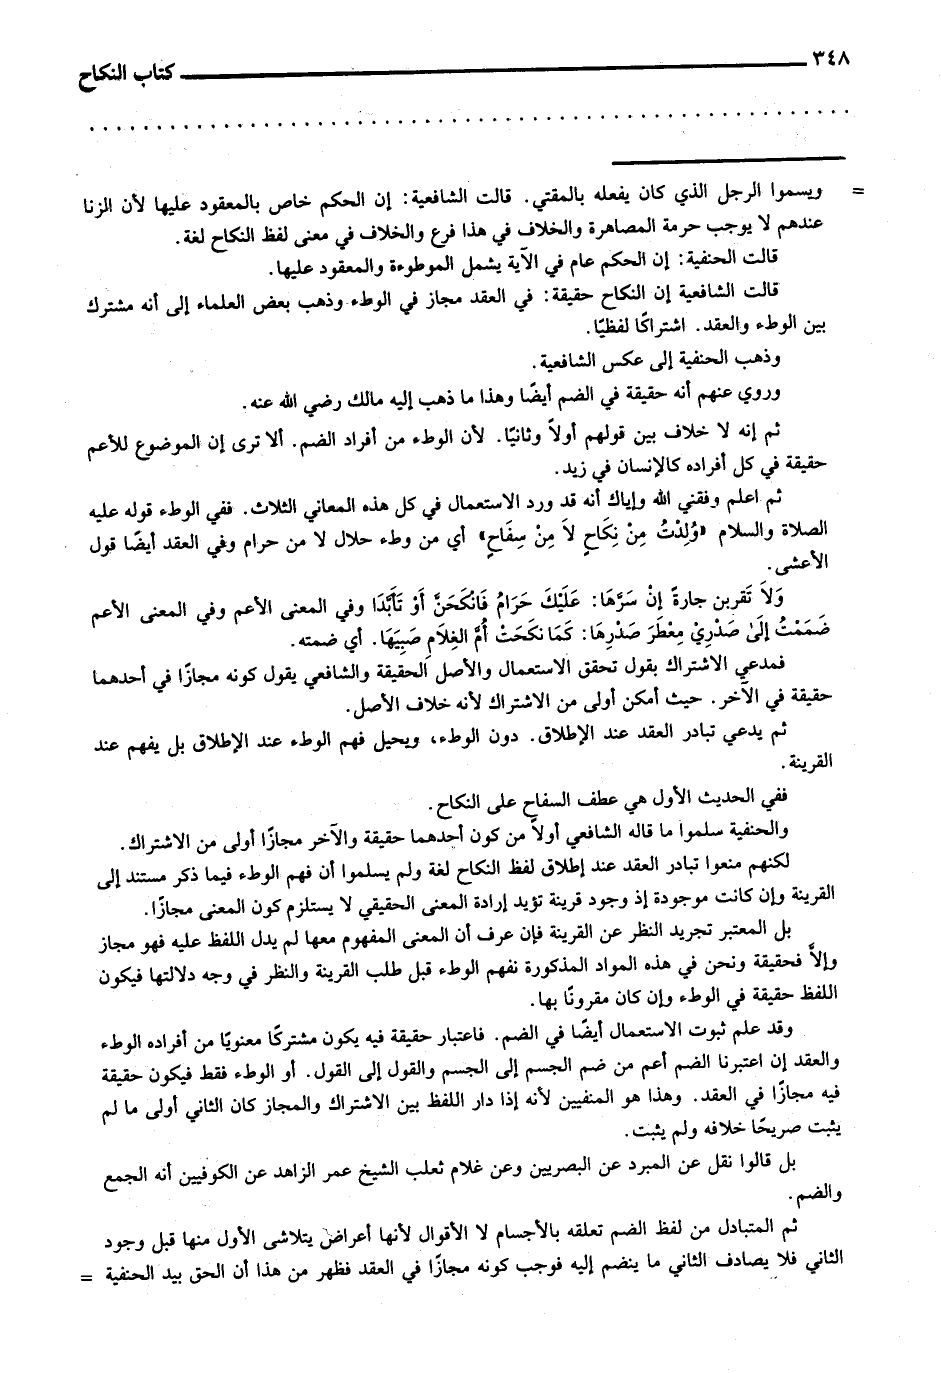 ٣٤٨ كتاب النكاح
= ويسموا الرجل الذي كان يفعله بالمقتي. قالت الشافعية: إن الحكم خاص بالمعقود عليها لأن الزنا
عندهم لا يوجب حرمة المصاهرة والخلاف في هذا فرع والخلاف في معنى لفظ النكاح لغة.
قالت الحنفية: إن الحكم عام في الآية يشمل الموطوءة والمعقود عليها.
قالت الشافعية إن النكاح حقيقة: في العقد مجاز في الوطء وذهب بعض العلماء إلى أنه مشترك
بين الوطء والعقد. اشتراكًا لفظيًا.
وذهب الحنفية إلى عكس الشافعية.
وروي عنهم أنه حقيقة في الضم أيضًا وهذا ما ذهب إليه مالك رضي الله عنه.
ثم إنه لا خلاف بين قولهم أولاً وثانيًا. لأن الوطء من أفراد الضم. ألا ترى إن الموضوع للأعم
حقيقة في كل أفراده كالإنسان في زيد.
ثم اعلم وفقني الله وإياك أنه قد ورد الاستعمال في كل هذه المعاني الثلاث. ففي الوطء قوله عليه
الصلاة والسلام «وُلِدْتُ مِنْ نِكَاحٍ لاَ مِنْ سِفَاحٍ» أي من وطء حلال لا من حرام وفي العقد أيضًا قول
الأعشى.
وَلاَ تَقربن جارةً إنْ سَرَّهَا: عَلَيْكَ حَرَامُ فَانْكَحَنَّ أَوْ تَأَبَّدَا وفي المعنى الأعم وفي المعنى الأعم
ضَمَمْتُ إِلَىٰ صَدْرِيْ مِعْطَرَ صَدْرِهَا: كَمَا نكَحَتْ أُمَّ الغِلاَمِ صَبِيَهَا. أي ضمته.
فمدعي الاشتراك بقول تحقق الاستعمال والأصل الحقيقة والشافعي يقول كونه مجازًا في أحدهما
حقيقة في الآخر. حيث أمكن أولى من الاشتراك لأنه خلاف الأصل.
ثم يدعي تبادر العقد عند الإطلاق. دون الوطء، ويحيل فهم الوطء عند الإطلاق بل يفهم عند
القرينة.
ففي الحديث الأول هي عطف السفاح على النكاح.
والحنفية سلموا ما قاله الشافعي أولاً من كون أحدهما حقيقة والآخر مجازًا أولى من الاشتراك.
لكنهم منعوا تبادر العقد عند إطلاق لفظ النكاح لغة ولم يسلموا أن فهم الوطء فيما ذكر مستند إلى
القرينة وإن كانت موجودة إذ وجود قرينة تؤيد إرادة المعنى الحقيقي لا يستلزم كون المعنى مجازًا.
بل المعتبر تجريد النظر عن القرينة فإن عرف أن المعنى المفهوم معها لم يدل اللفظ عليه فهو مجاز
وإلاَّ فحقيقة ونحن في هذه المواد المذكورة نفهم الوطء قبل طلب القرينة والنظر في وجه دلالتها فيكون
اللفظ حقيقة في الوطء وإن كان مقرونًا بها.
وقد علم ثبوت الاستعمال أيضًا في الضم. فاعتبار حقيقة فيه يكون مشتركًا معنويًا من أفراده الوطء
والعقد إن اعتبرنا الضم أعم من ضم الجسم إلى الجسم والقول إلى القول. أو الوطء فقط فيكون حقيقة
فيه مجازًا في العقد. وهذا هو المنفيين لأنه إذا دار اللفظ بين الاشتراك والمجاز كان الثاني أولى ما لم
يثبت صريحًا خلافه ولم يثبت.
بل قالوا نقل عن المبرد عن البصريين وعن غلام ثعلب الشيخ عمر الزاهد عن الكوفيين أنه الجمع
والضم.
ثم المتبادل من لفظ الضم تعلقه بالأجسام لا الأقوال لأنها أعراض يتلاشى الأول منها قبل وجود
الثاني فلا يصادف الثاني ما ينضم إليه فوجب كونه مجازًا في العقد فظهر من هذا أن الحق بيد الحنفية =